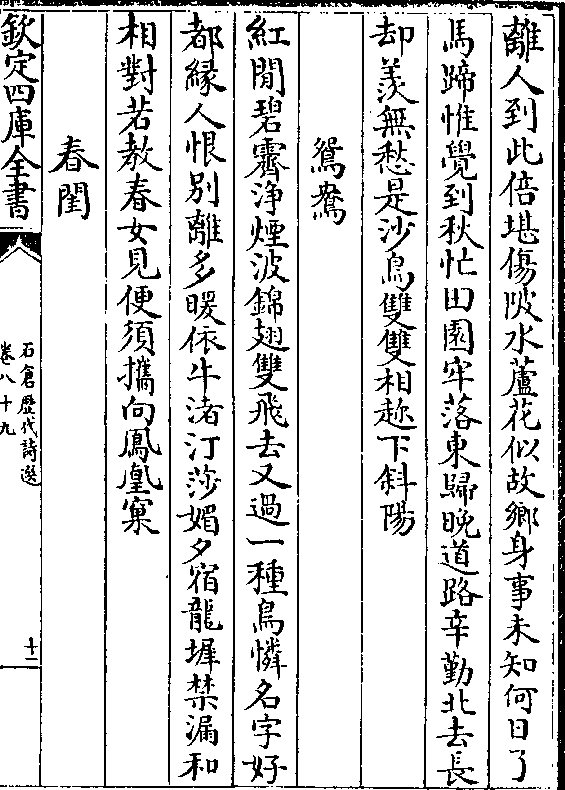 離人到此倍堪傷陂水蘆花似故鄉身事未知何日了
馬蹄惟覺到秋忙田園牢落東歸晚道路辛勤北去長
却羨無愁是沙鳥雙雙相趂下斜陽
鴛鴦
紅閒碧霽浄煙波錦翅雙飛去又過一種鳥憐名字好
都縁人恨別離多暖依牛渚汀莎媚夕宿龍墀禁漏和
相對若教春女見便須攜向鳳凰窠
春閨
欽定四庫全書
石倉歴代詩選
卷八十九
十二